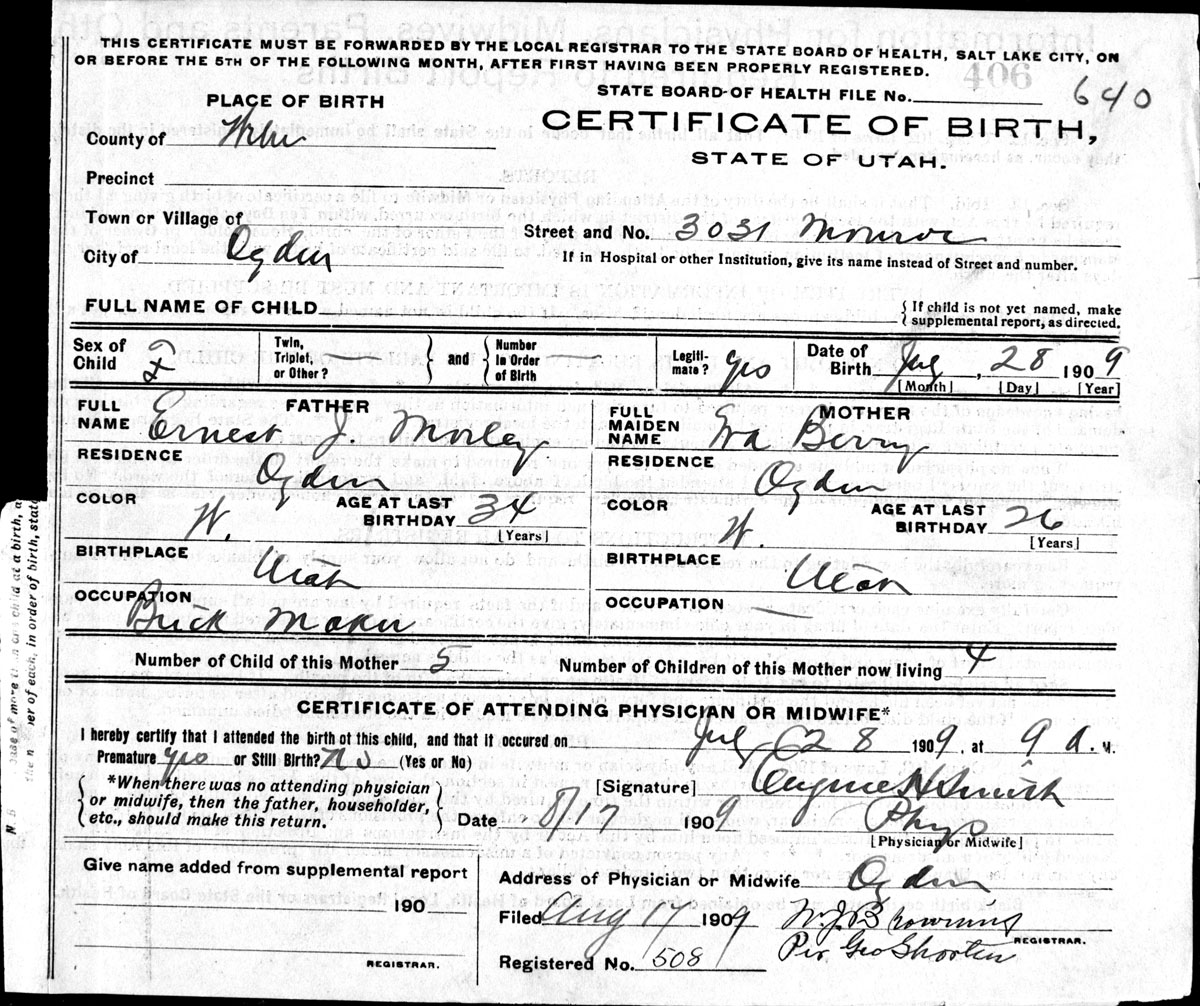 THIS CERTIFICATE MUST BE FORWARDED BY THE LOCAL REGISTRAR TO THE STATE BOARD OF HEALTH, SALT LAKE CITY, ON
OR BEFORE THE 5TH OF THE FOLLOWING MONTH, AFTER FIRST HAVING BEEN PROPERLY REGISTERED.
STATE BOARD OF HEALTH FILE No. 640
406
PLACE OF BIRTH
CERTIFICATE OF BIRTH,
STATE OF UTAH.
County of Weber
Precinct
Town or Village of
City of Ogden
Street and No. 3031 Monroe
If in Hospital or other Institution, give its name instead of Street and number.
FULL NAME OF CHILD
If child is not yet named, make
supplemental report, as directed.
Sex of Child F
Twin, Triplet, or Other?
and
Number in Order of Birth
Legiti-mate? yes
Date of Birth July, 28 1909
[Month] [Day] [Year]
FATHER
FULL NAME Ernest J Morley
RESIDENCE Ogden
COLOR W.
AGE AT LAST BIRTHDAY 34
[Years]
BIRTHPLACE Utah
OCCUPATION
Brick Maker
MOTHER
FULL MAIDEN NAME Eva Berry
RESIDENCE Ogden
COLOR W.
AGE AT LAST BIRTHDAY 26
[Years]
BIRTHPLACE Utah
OCCUPATION —
Number of Child of this Mother 5
Number of Children of this Mother now living 4
CERTIFICATE OF ATTENDING PHYSICIAN OR MIDWIFE*
I hereby certify that I attended the birth of this child, and that it occured on July 28 1909, at 9 a. M.
Premature yes or Still Birth? No (Yes or No)
*When there was no attending physician
or midwife, then the father, householder,
etc., should make this return.
[Signature] Eugene H Smith
Date 8/17 1909
Phys
[Physician or Midwife]
Give name added from supplemental report
190
REGISTRAR.
Address of Physician or Midwife Ogden
Filed Aug 17 1909
W. J. Browning
REGISTRAR.
Per Geo Shorten
Registered No. 508